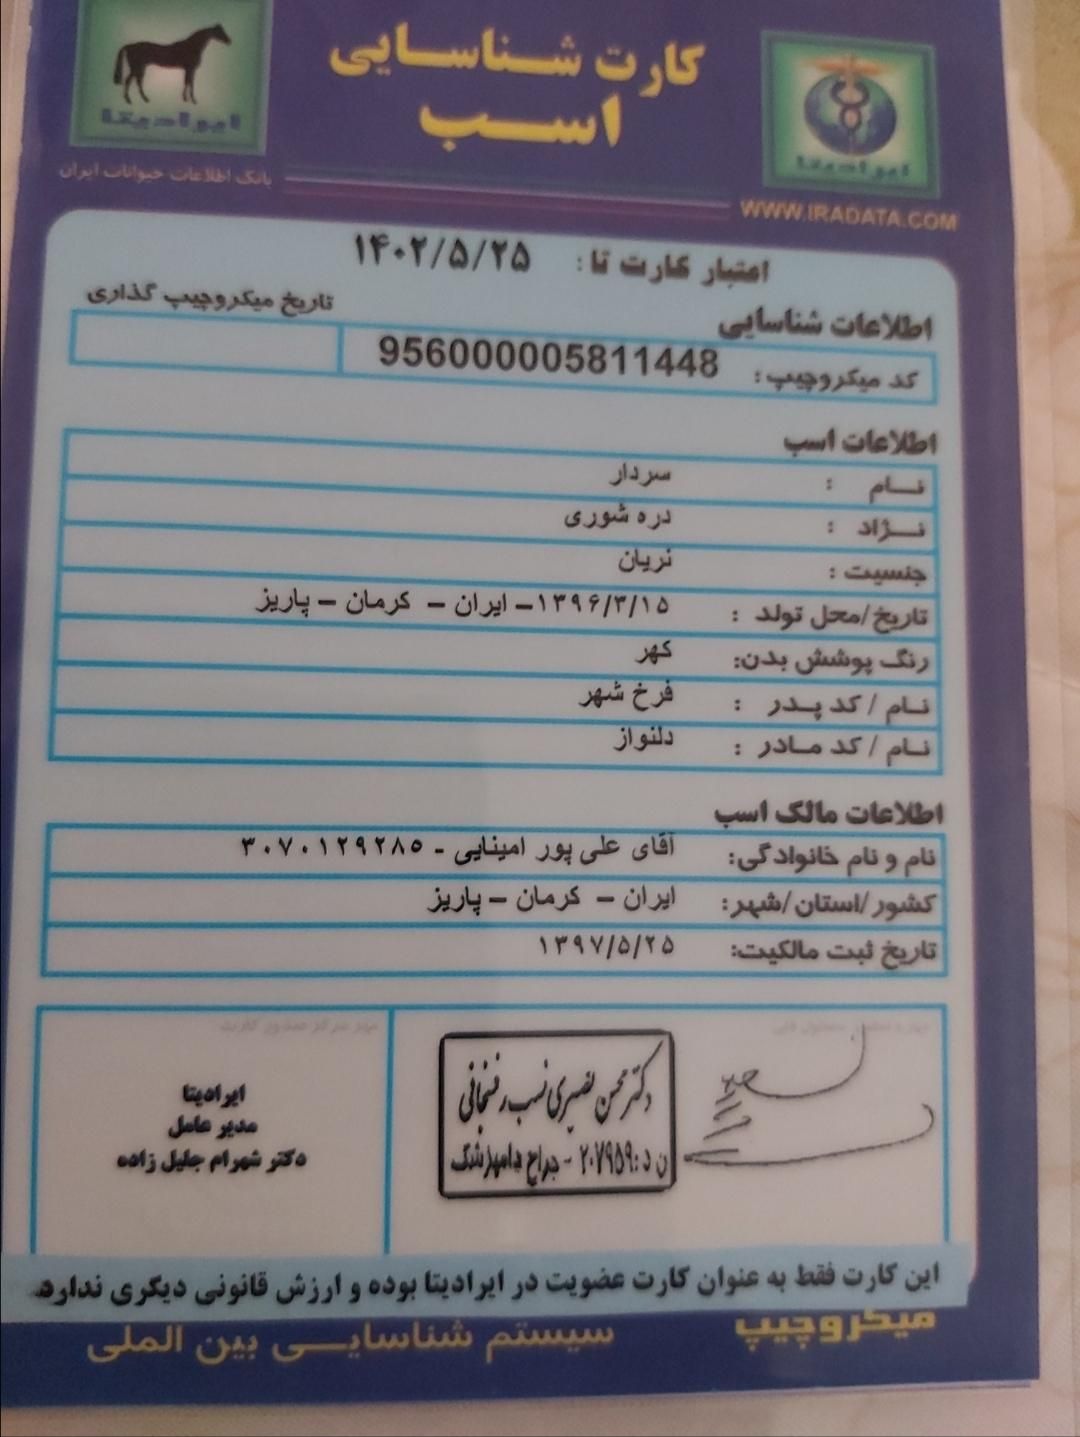 کارت شناسایی
اسب
ایرادیتا
ایرادیتا
بانک اطلاعات حیوانات ایران
WWW.IRADATA.COM
اعتبار کارت تا: ۱۴۰۲/۵/۲۵
اطلاعات شناسایی
تاریخ میکروچیپ گذاری
کد میکروچیپ: 956000005811448
اطلاعات اسب
نام : سردار
نژاد : دره شوری
جنسیت : نریان
تاریخ/محل تولد : ۱۳۹۶/۳/۱۵- ایران – کرمان – پاریز
رنگ پوشش بدن: کهر
نام / کد پدر : فرخ شهر
نام / کد مادر : دلنواز
اطلاعات مالک اسب
نام و نام خانوادگی: آقای علی پور امینایی - ۳۰۷۰۱۲۹۲۸۵
کشور/استان/شهر: ایران – کرمان – پاریز
تاریخ ثبت مالکیت: ۱۳۹۷/۵/۲۵
مهر مرکز صدور کارت
دکتر محسن نصیری نسب رفسنجانی
ن د: ۲۰۷۹۵۹ - جراح دامپزشک
ایرادیتا
مدیر عامل
دکتر شهرام جلیل زاده
این کارت فقط به عنوان کارت عضویت در ایرادیتا بوده و ارزش قانونی دیگری ندارد
میکروچیپ سیستم شناسایی بین المللی